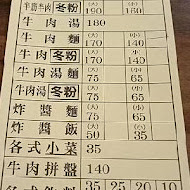 牛肉冬粉 (大)190 (小)160
牛肉湯 180
牛肉麵 (大)170 (小)140
牛肉冬粉 (大)170 (小)140
牛肉湯麵 (大)75 (小)65
牛肉湯冬粉 (大)75 (小)65
炸醬麵 (大)75 (小)65
炸醬飯 (大)50 (小)35
各式小菜 35
牛肉拼盤 140
35 25 20 10